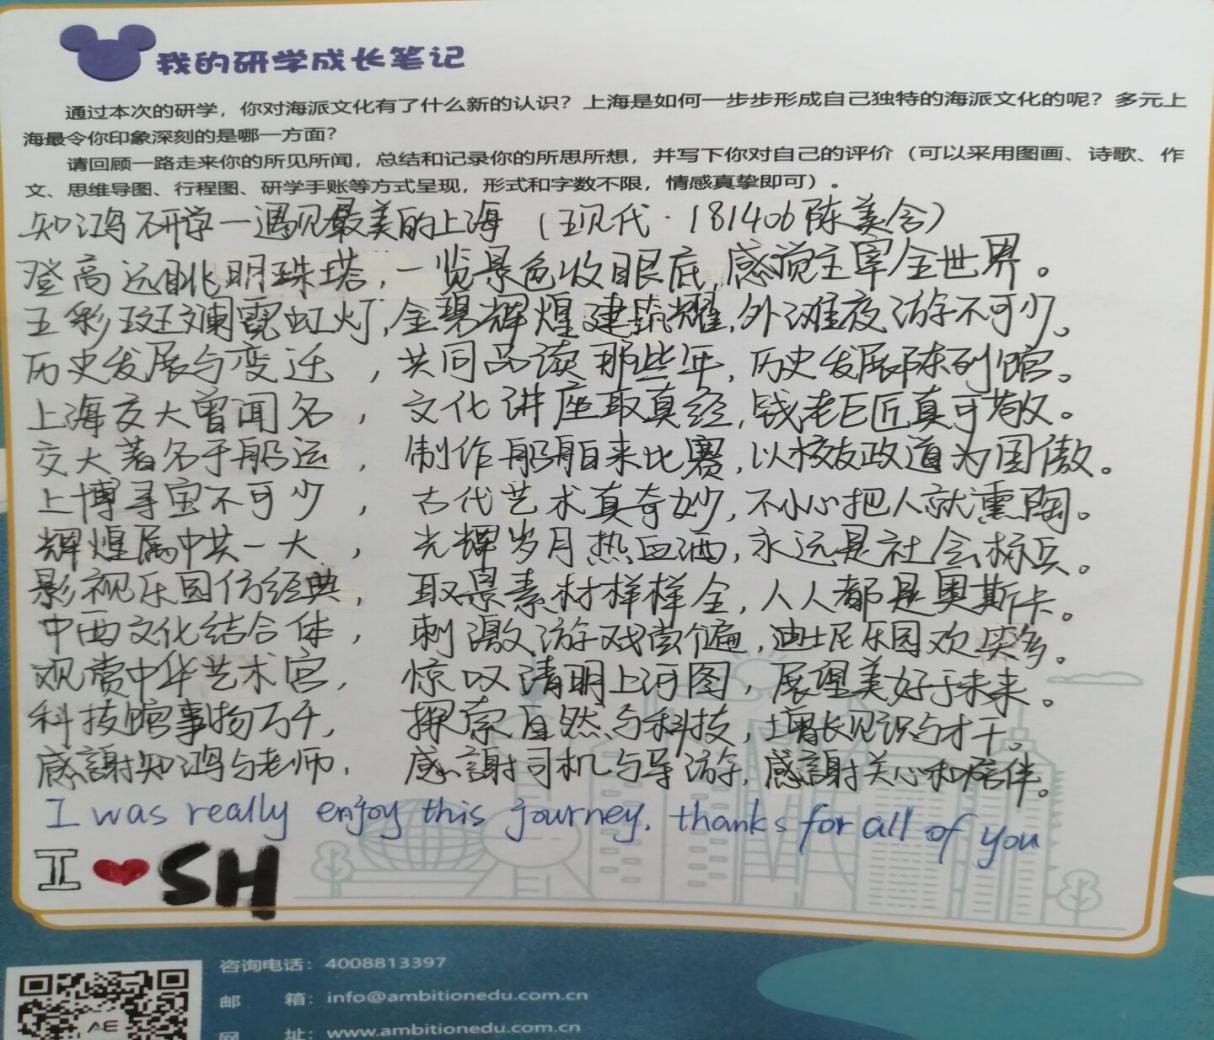 我的研学成长笔记
通过本次的研学，你对海派文化有了什么新的认识？上海是如何一步步形成自己独特的海派文化的呢？多元上
海最令你印象深刻的是哪一方面？
请回顾一路走来你的所见所闻，总结和记录你的所思所想，并写下你对自己的评价（可以采用图画、诗歌、作
文、思维导图、行程图、研学手账等方式呈现，形式和字数不限，情感真挚即可）。
知鸿研学一遇见最美的上海（现代·181406陈美含）
登高远眺明珠塔，一览景色收眼底，感觉主宰全世界。
五彩斑斓霓虹灯，金碧辉煌建筑耀，外滩夜游不可少。
历史发展与变迁，共同品读那些年，历史发展陈列馆。
上海交大曾闻名，文化讲座取真经，钱老巨匠真可敬。
交大著名于船运，制作船舶来比赛，以校友政道为国傲。
上博寻宝不可少，古代艺术真奇妙，不小心把人就熏陶。
辉煌属中共一大，光辉岁月热血洒，永远是社会标兵。
影视乐园仿经典，取景素材样样全，人人都是奥斯卡。
中西文化结合体，刺激游戏尝个遍，迪士尼乐园欢笑多。
观赏中华艺术宫，惊叹清明上河图，展望美好于未来。
科技馆事物万千，探索自然与科技，增长见识与才干。
感謝知鸿与老师，感謝司机与导游，感謝关心和陪伴。
I was really enjoy this journey. thanks for all of you
I ❤ SH
咨询电话：4008813397
邮 箱：info@ambitionedu.com.cn
网 址：www.ambitionedu.com.cn
AE